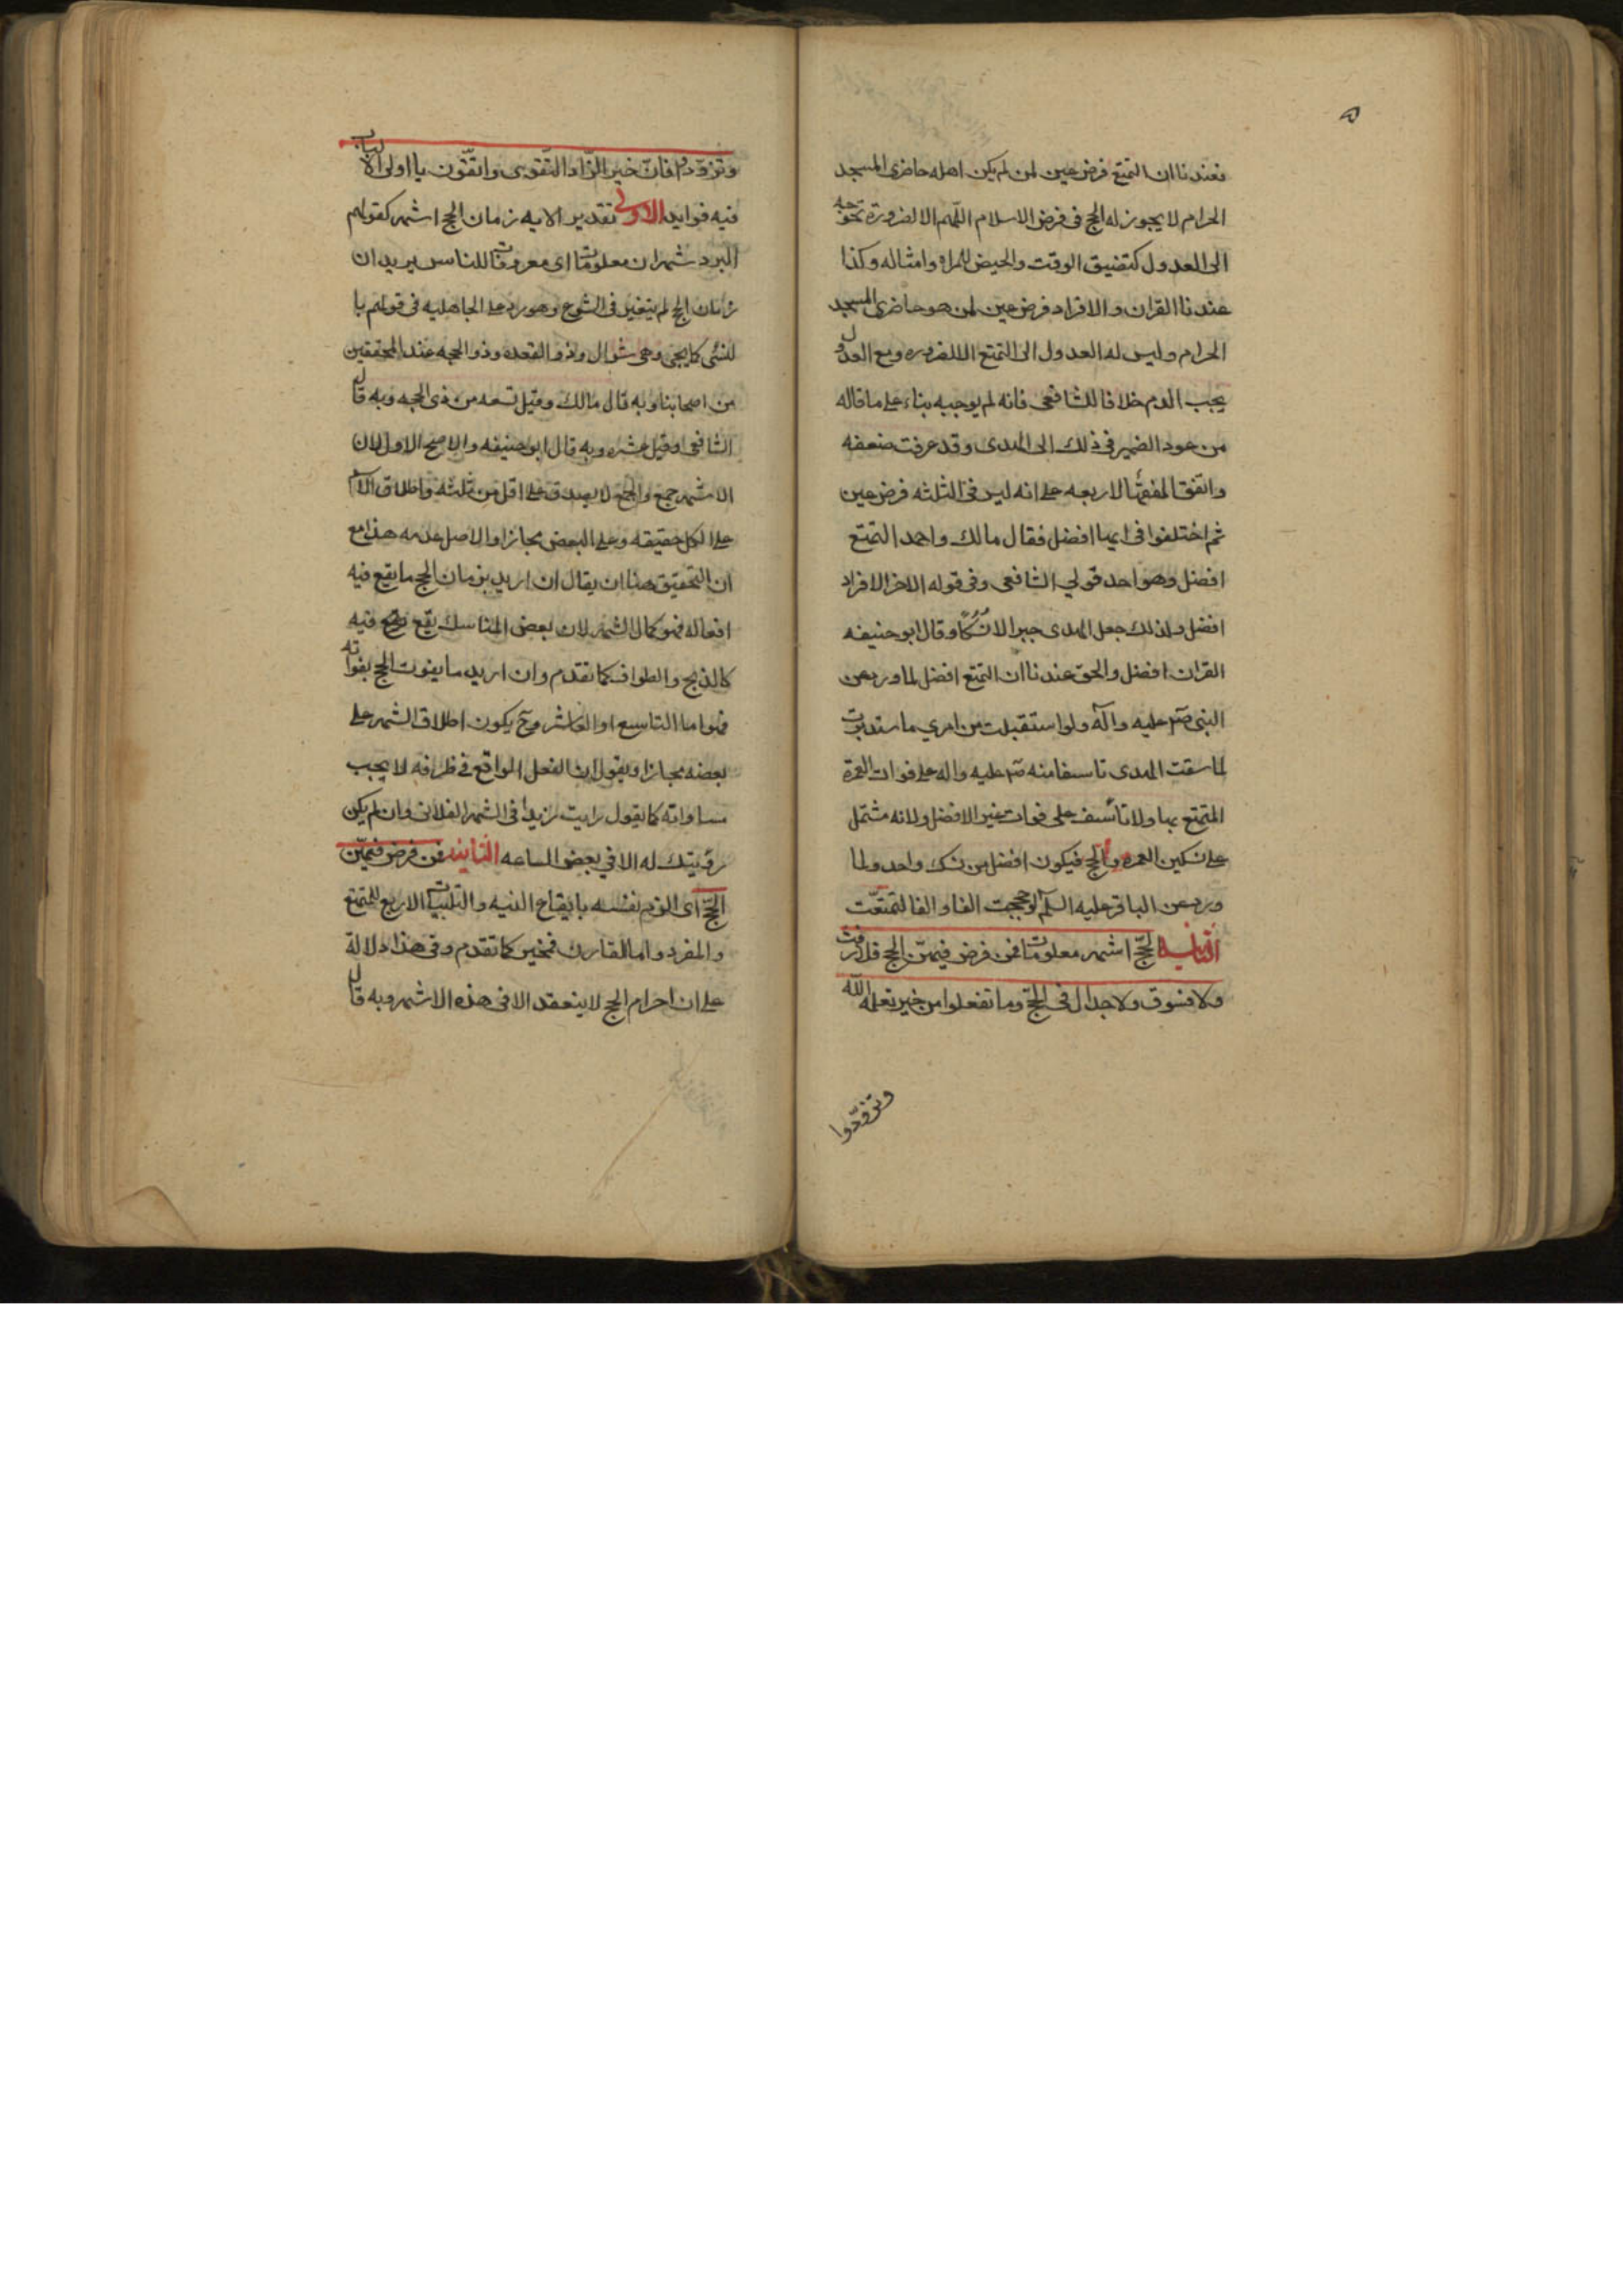 فعندنا ان التمتع فرض عين لمن لم يكن اهله حاضرى المسجد
الحرام لا يجوز له الحج فى فرض الاسلام اللهم الا لضرورة تحوجه
الى العدول كتضيق الوقت والحيض للمراه وامثاله وكذا
عندنا القران والافراد فرض عين لمن هو حاضرى المسجد
الحرام وليس له العدول الى التمتع الا للضروره ومع العدول
يجب الدم خلافا للشافعى فانه لم يوجبه بناء على ما قاله
من عود الضمير فى ذلك الى الهدى وقد عرفت ضعفه
واتفق الفقهأ الاربعه على انه ليس فى الثلثه فرض عين
ثم اختلفوا فى ايها افضل فقال مالك واحمد التمتع
افضل وهو احد قولي الشافعى وفى قوله الاخر الافراد
افضل ولذلك جعل الهدى جبرا لا نُسُكًا وقال ابو حنيفه
القران افضل والحق عندنا ان التمتع افضل لما ورد عن
النبى صم عليه وآله ولو استقبلت من امري ما ستدبرت
لما سقت الهدى تاسفا منه صم عليه واله على فوات العمرة
المتمتع بها ولا تأسف على فوات غير الافضل ولانه مشتمل
على نسكين العمره والحج فيكون افضل من نسك واحد ولما
ورد عن الباقر عليه السلم لو حججت الفا والفا لتمتعّت
الثانيه الحجّ اشهر معلومات فمن فرض فيهنّ الحج فلا رفث
ولا فسوق ولا جدال فى الحجّ وما تفعلوا من خير يعلمه الله
وتزوّدوا
وتزوّدوا فانّ خير الزّاد التّقوى واتّقون يا اولى الالباب
فيه فوايد الاولى تقدير الايه زمان الحج اشهر كقولهم
البرد شهران معلومات اى معروفات للناس يريد ان
زمان الحج لم يتغير فى الشرع وهو رد على الجاهليه فى قولهم با
لنسئى كما يجى وهى شوال وذو القعده وذو الحجه عند المحققين
من اصحابنا وبه قال مالك وقيل تسعه من ذى الحجه وبه قال
الشافعى وقيل عشره وبه قال ابو حنيفه والاصح الاول لان
الاشهر جمع والجمع لا يصدق على اقل من ثلثه واطلاق
على الكل حقيقه وعلى البعض مجازا والاصل عدمه هذا مع
ان التحقيق هنا ان يقال ان اريد بزمان الحج ما يقع فيه
افعاله فهو كمال الشهر لان بعض المناسك يقع فيه
كالذبح والطواف كما تقدم وان اريد ما يفوت الحج بفواته
فهو اما التاسع او العاشر وح يكون اطلاق الشهر على
بعضه مجازا ويقول ان الفعل الواقع فى ظرافه لا يجب
مساواته كما يقول رايت زيدا فى الشهر الفلانى وان لم يكن
رؤيتك له الا في بعض الساعه الثانيه فمن فرض فيهنّ
الحجّ اى الزم نفسه بايقاع النيه والتلبيات الاربع للمتمتع
والمفرد واما القارن فمخير كما تقدم وفى هذا دلالة
على ان احرام الحج لا ينعقد الا فى هذه الاشهر وبه قال